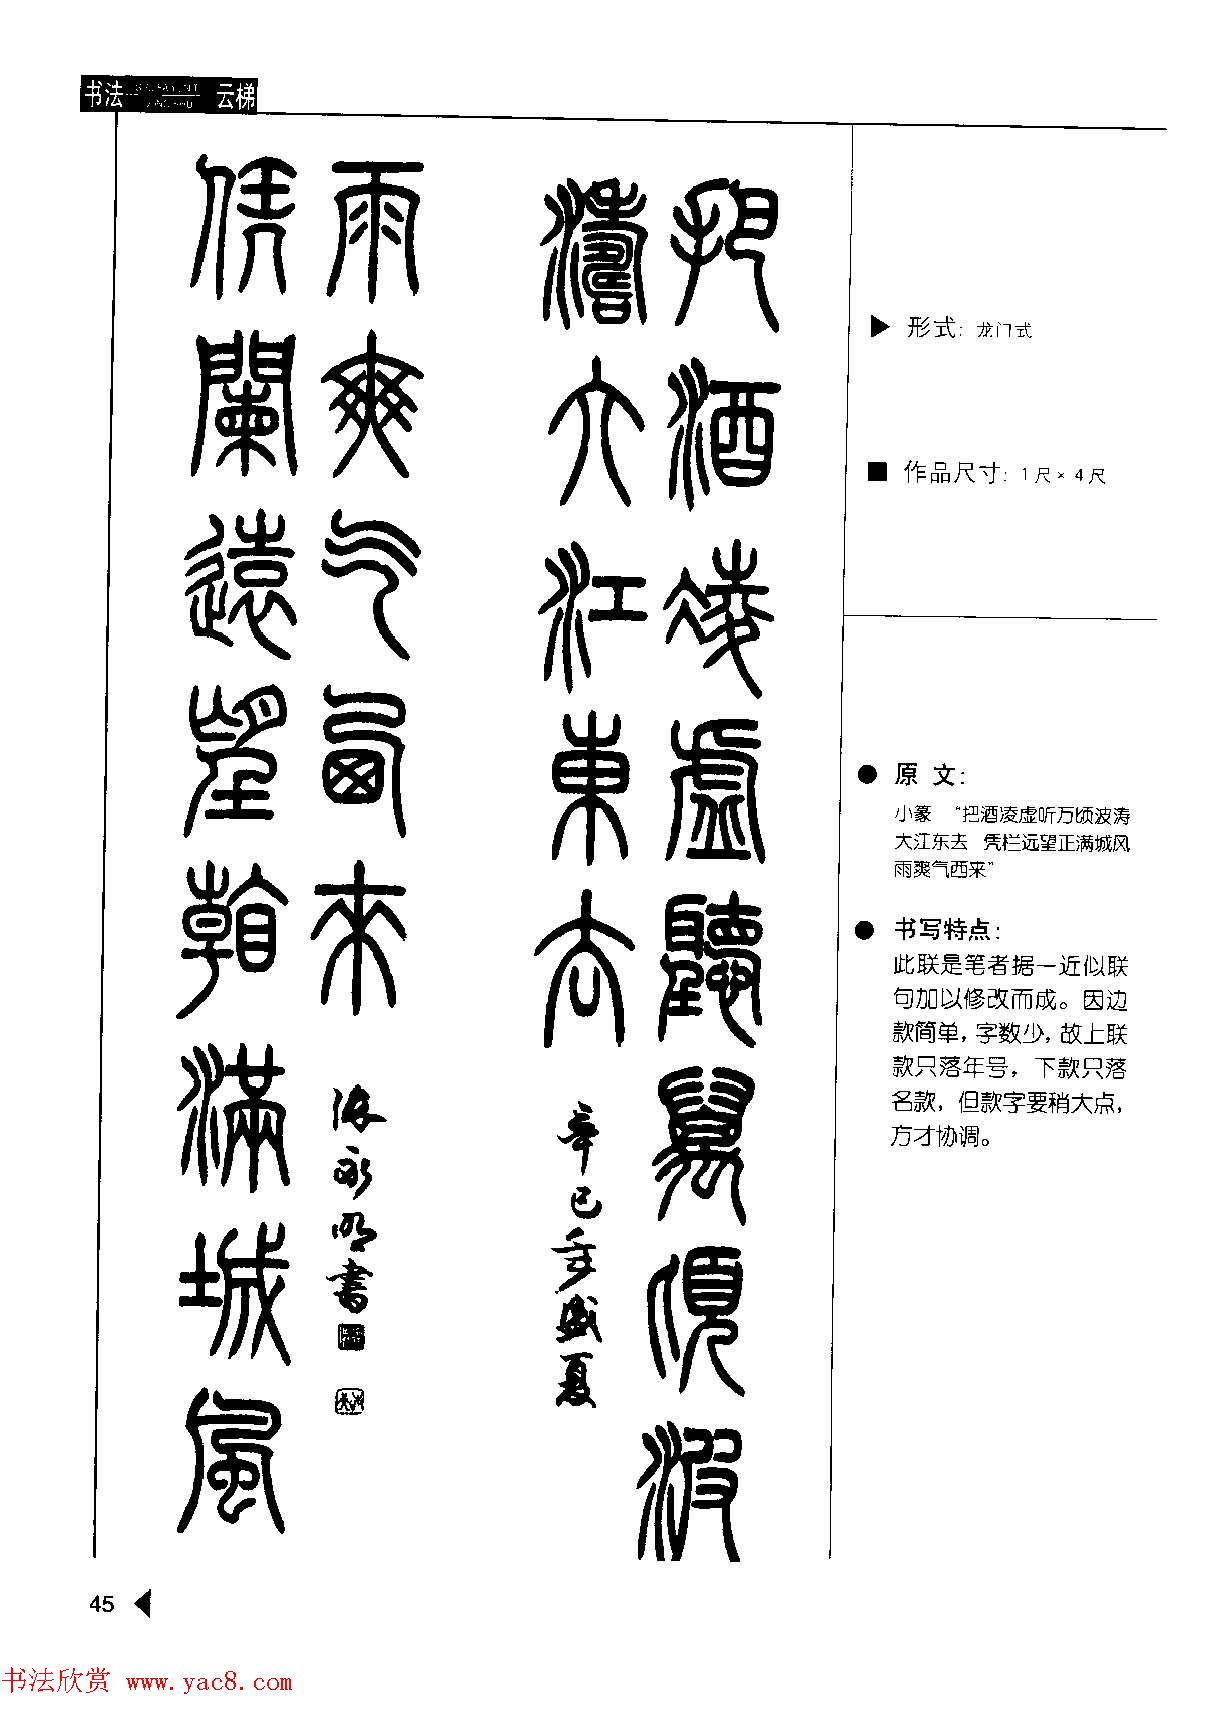 书法 云梯
把酒凌虚聽萬頃波
濤大江東去
辛巳年盛夏
凭闌遠望滿城風
雨爽气西來
永明書
▶ 形式: 龙门式
■ 作品尺寸: 1尺×4尺
● 原 文:
小篆 “把酒凌虚听万顷波涛
大江东去 凭栏远望正满城风
雨爽气西来”
● 书写特点:
此联是笔者据一近似联
句加以修改而成。因边
款简单，字数少，故上联
款只落年号，下款只落
名款，但款字要稍大点，
方才协调。
45
书法欣赏 www.yac8.com